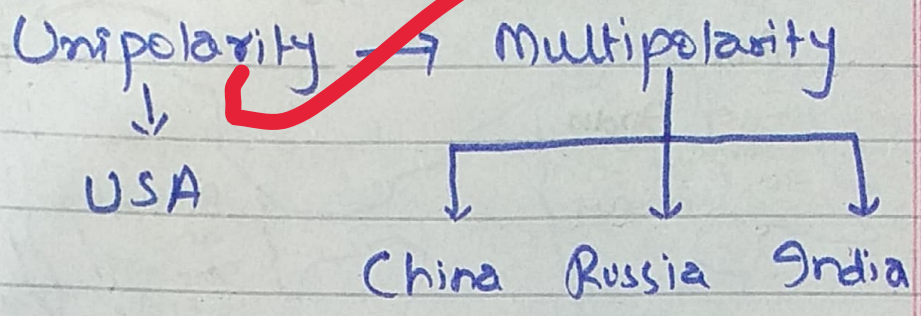 Unipolarity → Multipolarity
USA
China Russia India